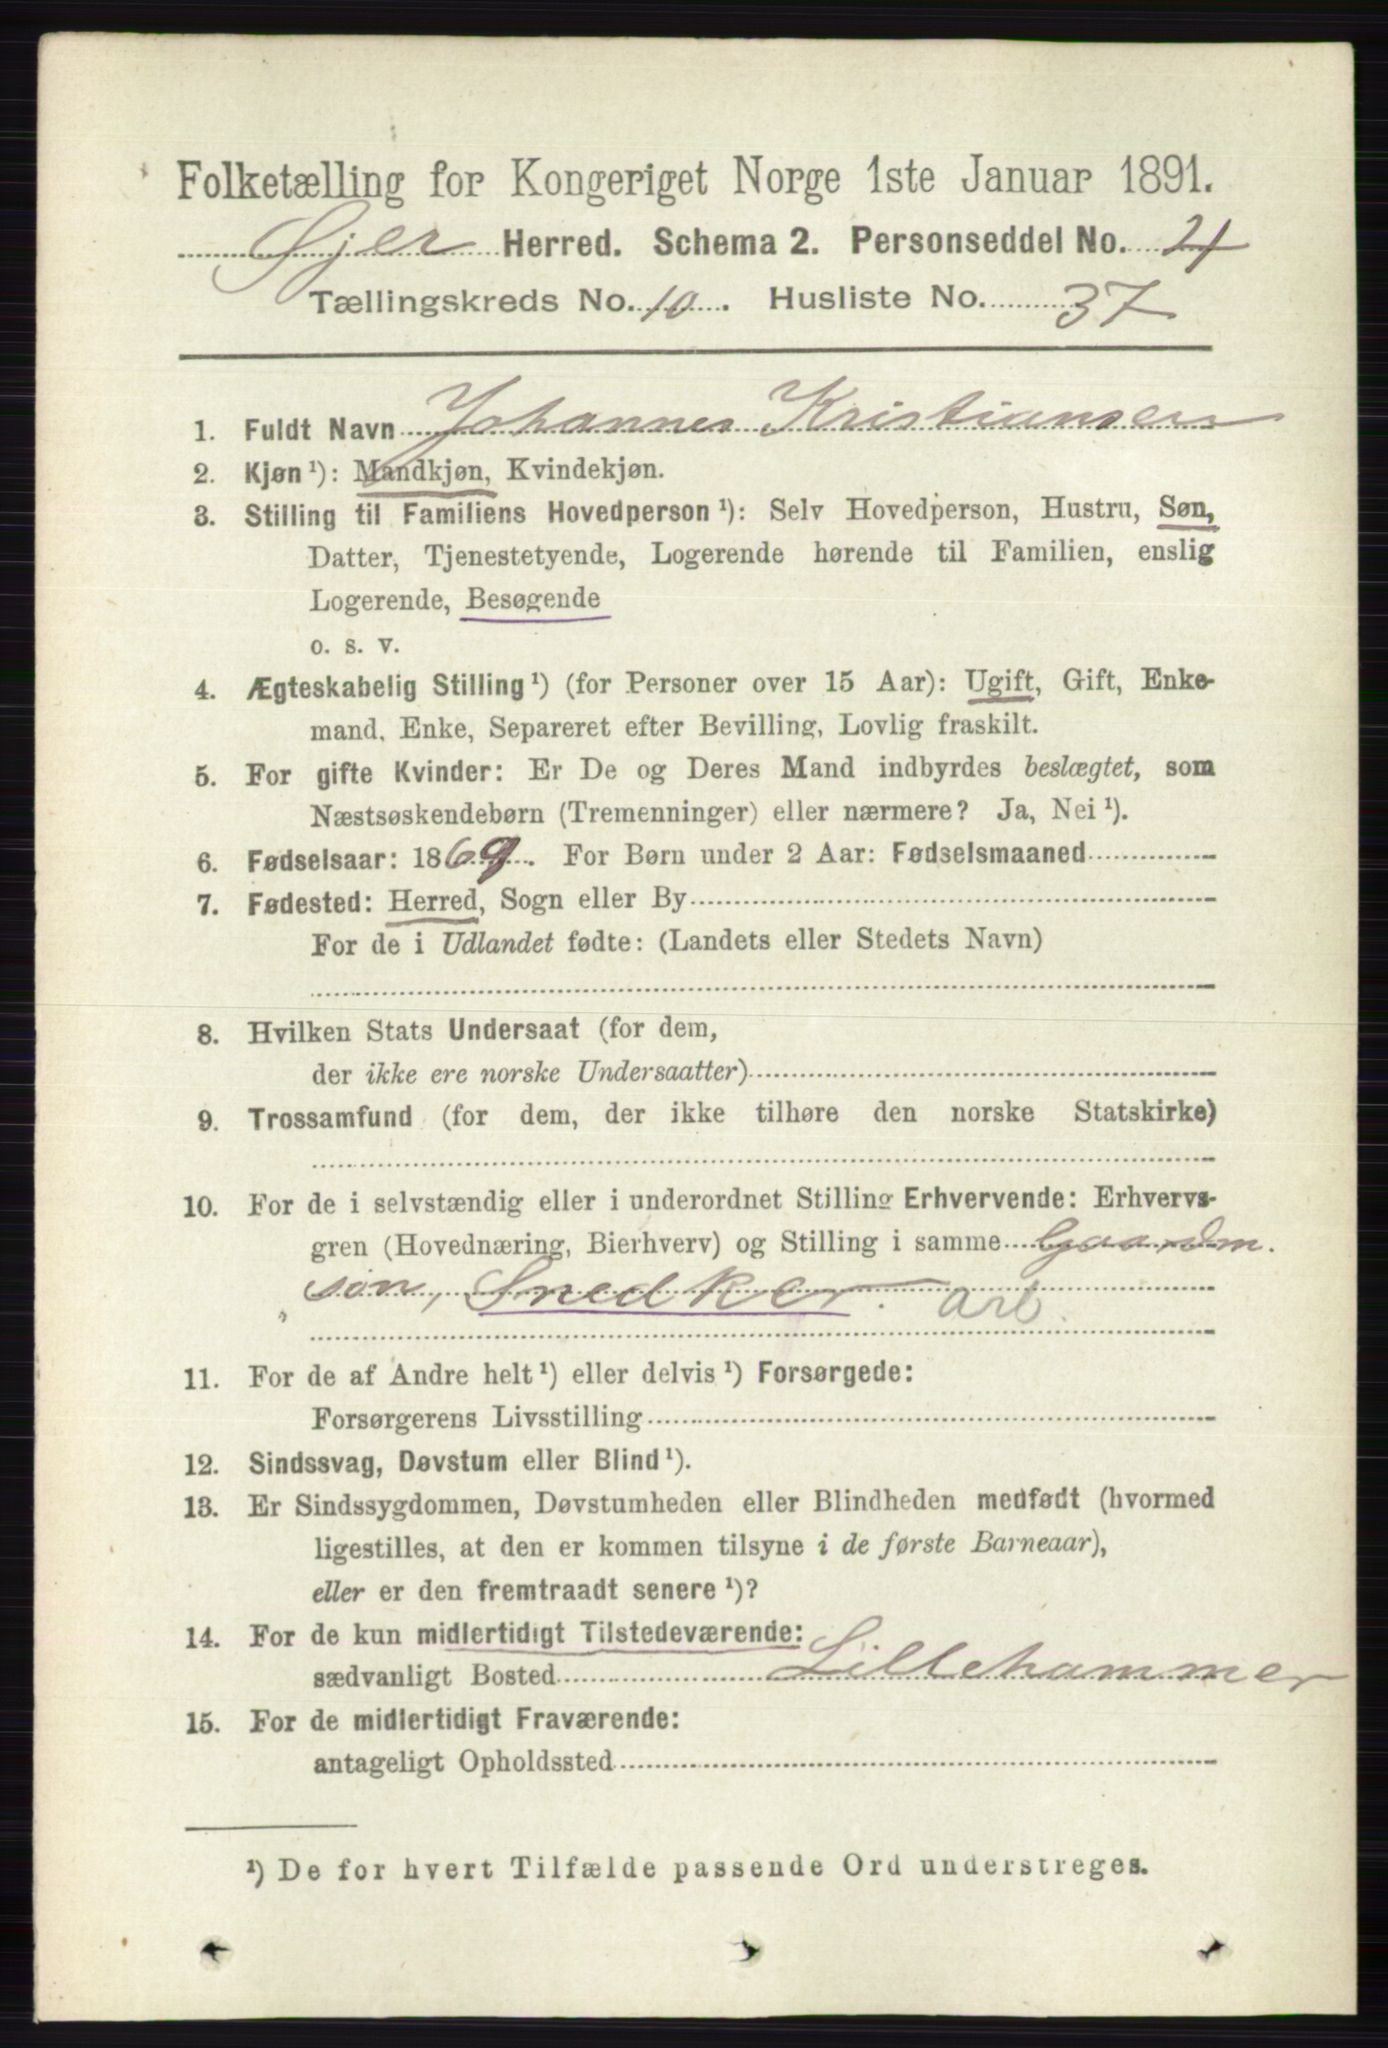 Folketælling for Kongeriget Norge 1ste Januar 1891.
Øjer Herred. Schema 2. Personseddel No. 4
Tællingskreds No. 10. Husliste No. 37
1. Fuldt Navn Johannes Kristiansen
2. Kjøn ¹): Mandkjøn, Kvindekjøn.
3. Stilling til Familiens Hovedperson ¹): Selv Hovedperson, Hustru, Søn,
Datter, Tjenestetyende, Logerende hørende til Familien, enslig
Logerende, Besøgende
o. s. v.
4. Ægteskabelig Stilling ¹) (for Personer over 15 Aar): Ugift, Gift, Enke-
mand, Enke, Separeret efter Bevilling, Lovlig fraskilt.
5. For gifte Kvinder: Er De og Deres Mand indbyrdes beslægtet, som
Næstsøskendebørn (Tremenninger) eller nærmere? Ja, Nei ¹).
6. Fødselsaar: 1869. For Børn under 2 Aar: Fødselsmaaned
7. Fødested: Herred, Sogn eller By
For de i Udlandet fødte: (Landets eller Stedets Navn)
8. Hvilken Stats Undersaat (for dem,
der ikke ere norske Undersaatter)
9. Trossamfund (for dem, der ikke tilhøre den norske Statskirke)
10. For de i selvstændig eller i underordnet Stilling Erhvervende: Erhvervs-
gren (Hovednæring, Bierhverv) og Stilling i samme Gaardm.
søn, Snedker. arb.
11. For de af Andre helt ¹) eller delvis ¹) Forsørgede:
Forsørgerens Livsstilling
12. Sindssvag, Døvstum eller Blind ¹).
13. Er Sindssygdommen, Døvstumheden eller Blindheden medfødt (hvormed
ligestilles, at den er kommen tilsyne i de første Barneaar),
eller er den fremtraadt senere ¹)?
14. For de kun midlertidigt Tilstedeværende:
sædvanligt Bosted Lillehammer
15. For de midlertidigt Fraværende:
antageligt Opholdssted
¹) De for hvert Tilfælde passende Ord understreges.